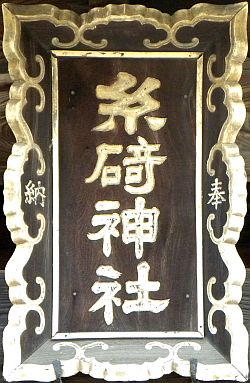 奉
糸碕神社
納